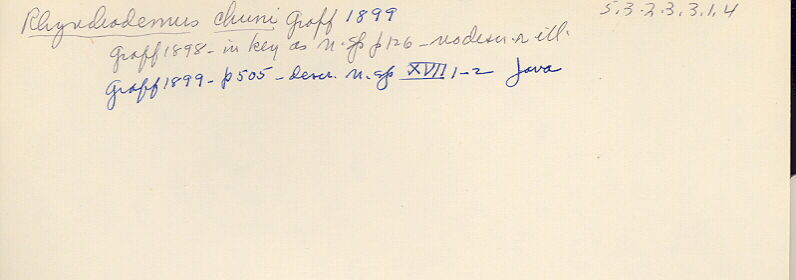 Rhynchodemus chuni Graff 1899
5.3.2.3.3.1.4
Graff 1898 - in key as n. sp p126 - no descr. n ill.
Graff 1899 - p505 - descr. n. sp XVII 1-2 Java